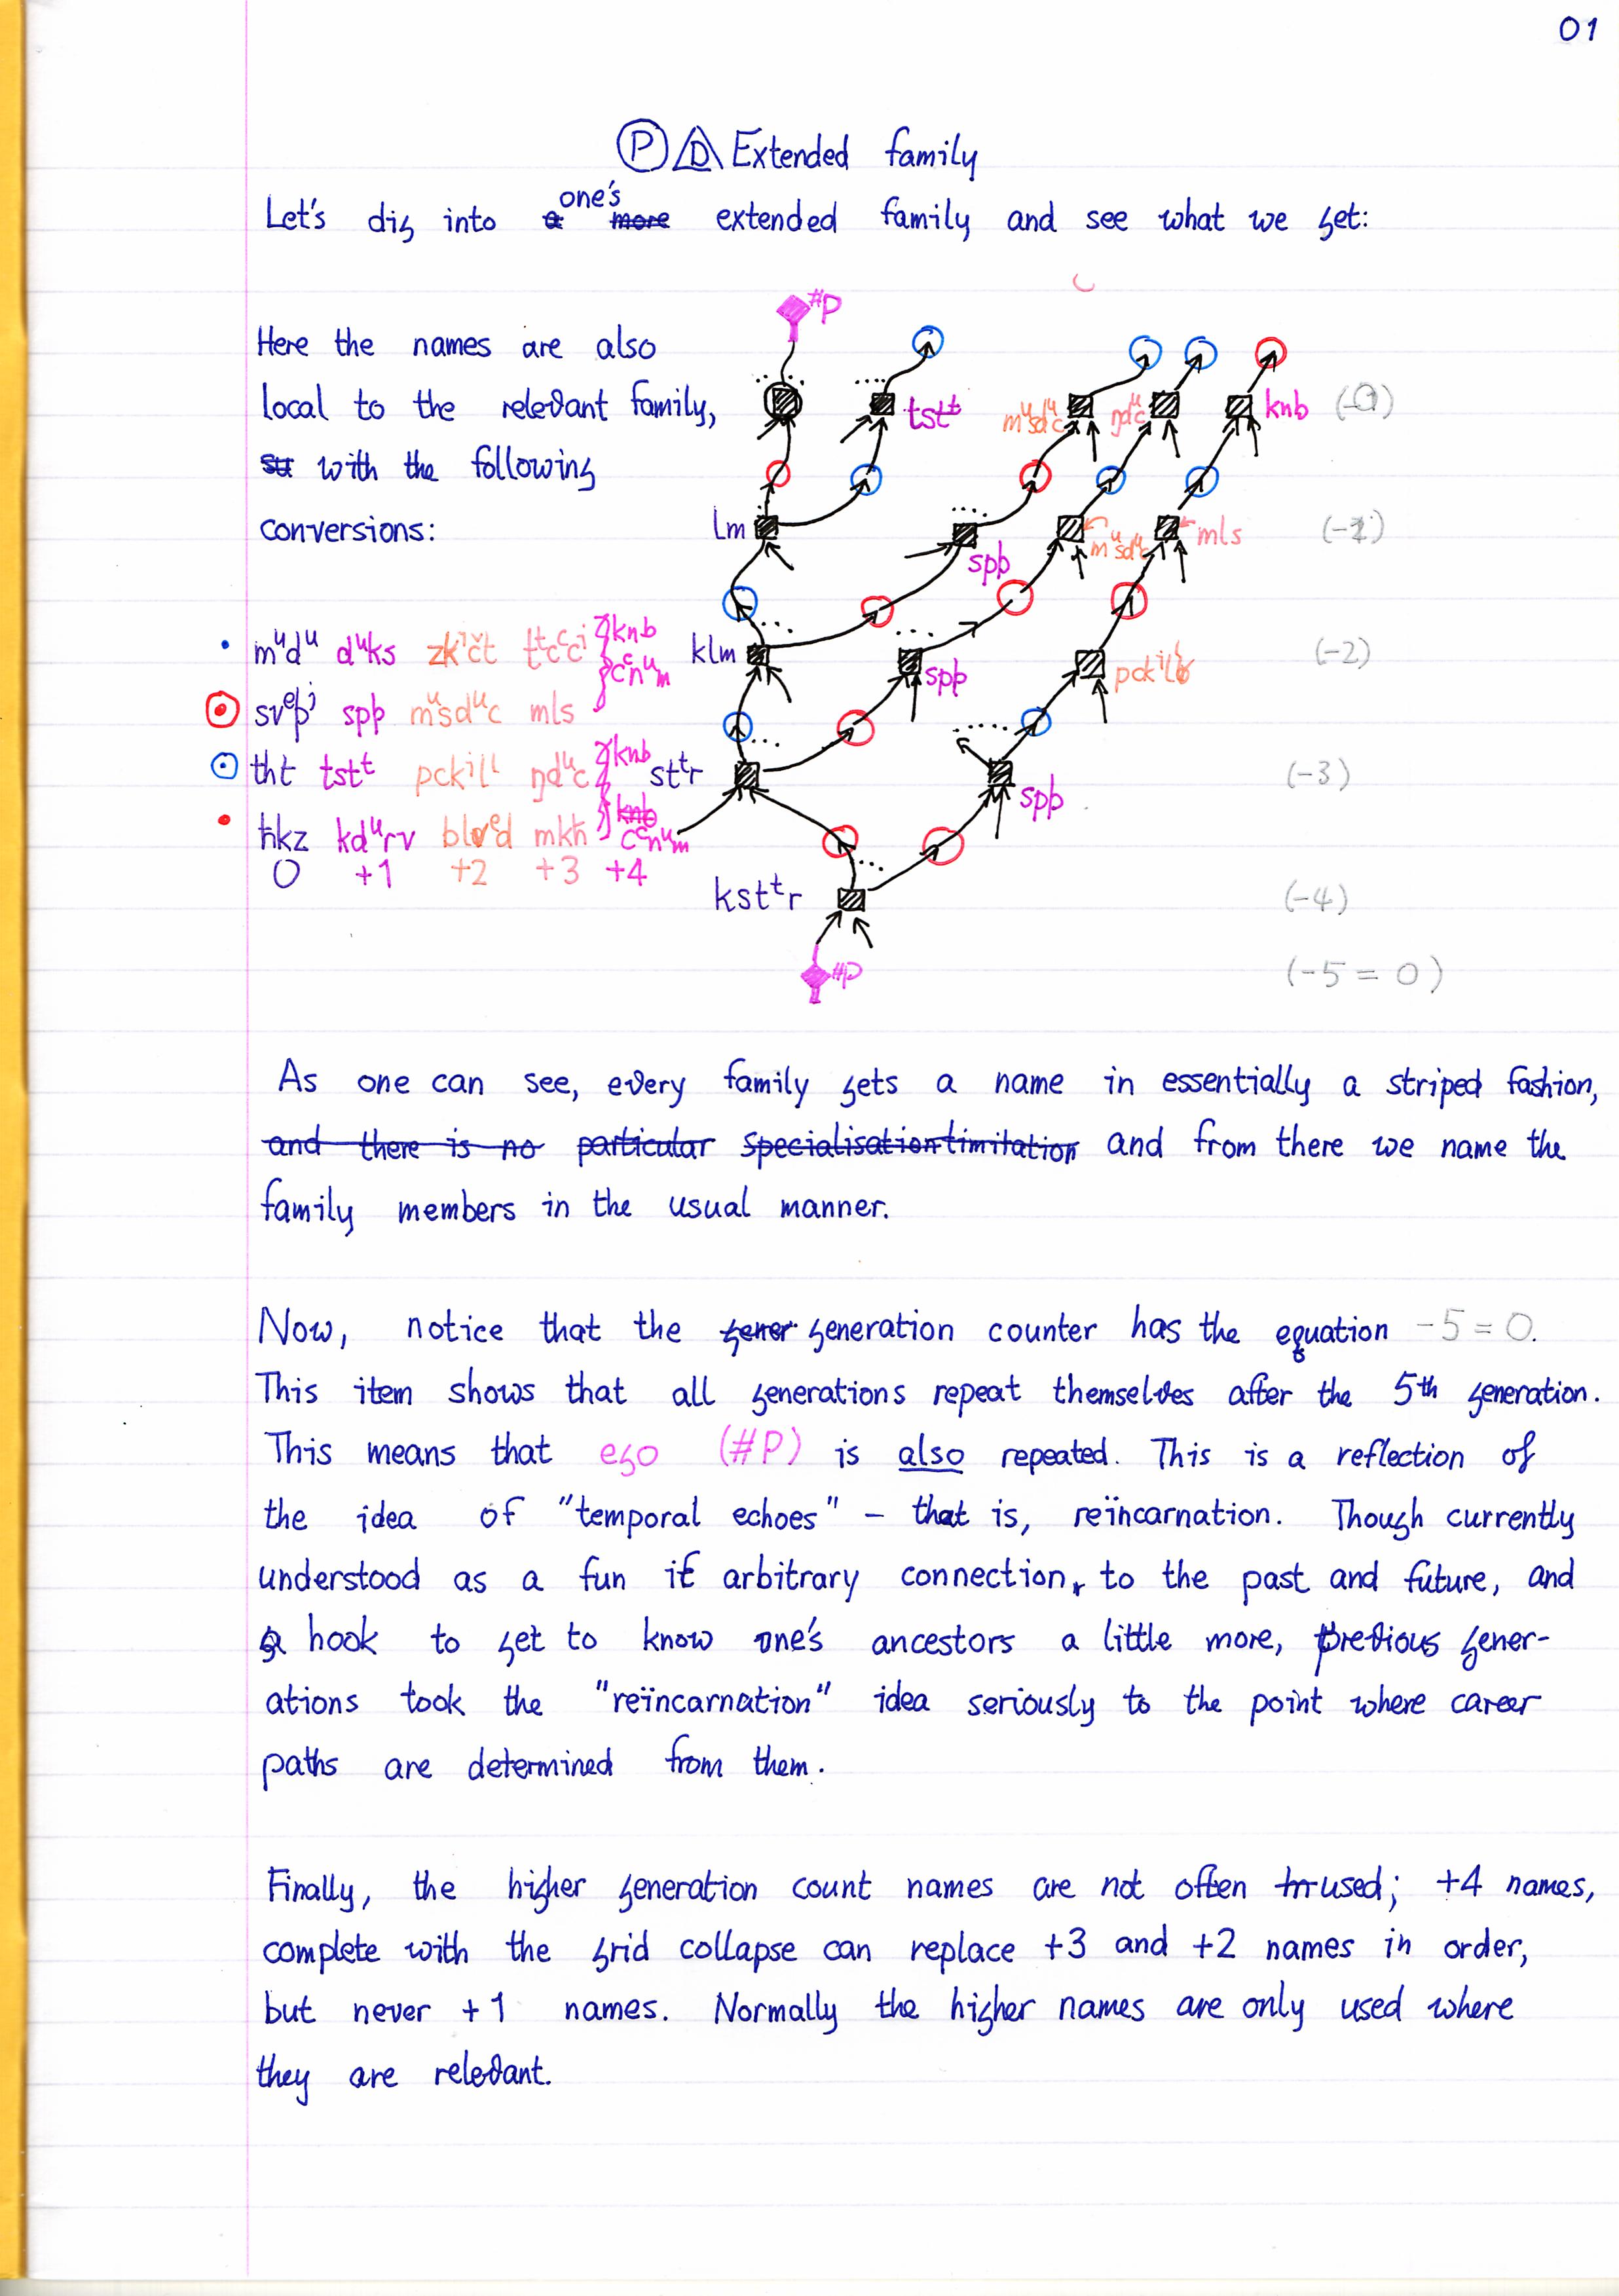 01
Ⓟ D Extended family
one's
Let's dig into a more extended family and see what we get:
#P
Here the names are also
local to the relevant family,
tstᵗ mᵘsdᵘc ŋdᵘc knb (-0)
su with the following
conversions:
lm spþ mᵘsdᵘc mls (-1)
mᵘdᵘ dᵘks zkⁱčt knb cᶜnᵘm
klm spþ (-2)
spþ mᵘsdᵘc mls
tht tstᵗ pckilˡ ŋdᵘc knb
stᵗr spþ (-3)
ħkz kdᵘrv mkħ knb cᶜnᵘm
0 +1 +2 +3 +4
kstᵗr (-4)
#P (-5 = 0)
As one can see, every family gets a name in essentially a striped fashion,
and there is no particular specialisation limitation and from there we name the
family members in the usual manner.
Now, notice that the gener generation counter has the equation -5 = 0.
This item shows that all generations repeat themselves after the 5th generation.
This means that ego (#P) is also repeated. This is a reflection of
the idea of "temporal echoes" – that is, reïncarnation. Though currently
understood as a fun if arbitrary connection, to the past and future, and
a hook to get to know one's ancestors a little more, previous gener-
ations took the "reïncarnation" idea seriously to the point where career
paths are determined from them.
Finally, the higher generation count names are not often used; +4 names,
complete with the grid collapse can replace +3 and +2 names in order,
but never +1 names. Normally the higher names are only used where
they are relevant.